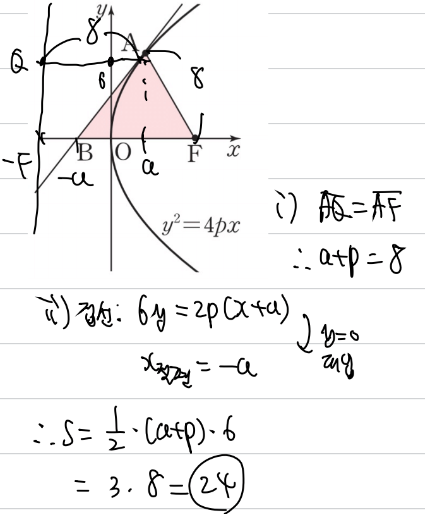 y
8
A
Q
6
8
a
-F
B
O
F
x
-a
y²=4px
i) A̅Q̅=A̅F̅
∴ a+p=8
ii) 접선: 6y=2p(x+a)
y=0
대입
x절편=-a
∴ S=½·(a+p)·6
=3·8=24